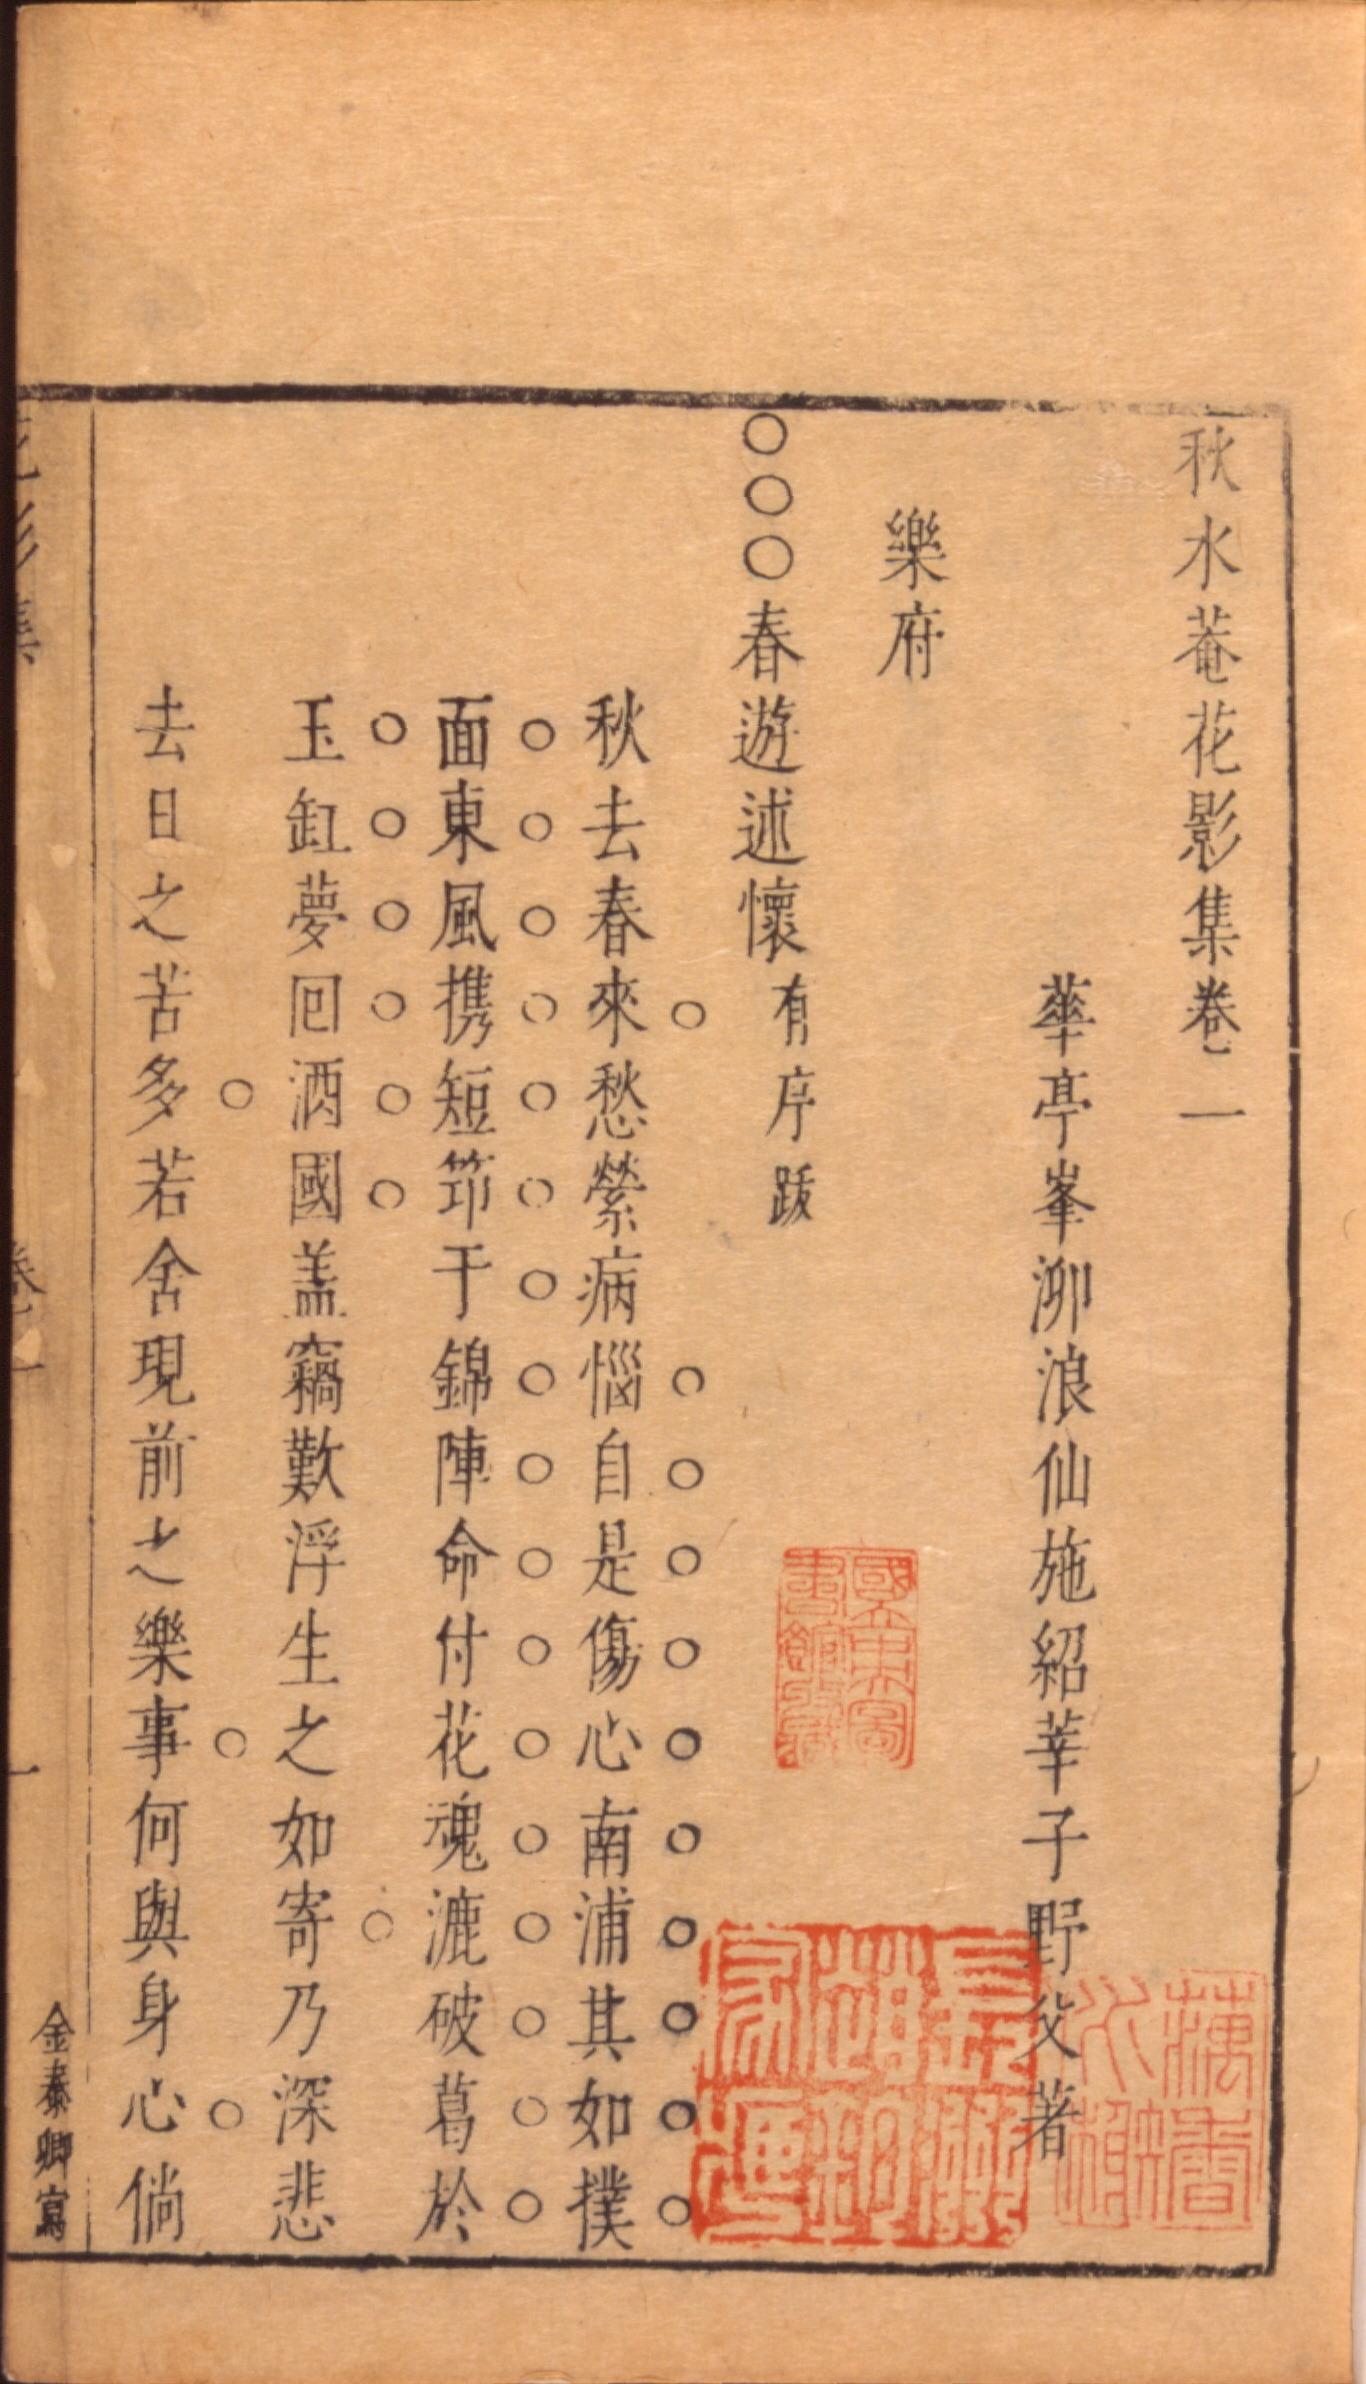 秋水菴花影集卷一
華亭峯泖浪仙施紹莘子野父著
樂府
○○○春遊述懷有序跋
秋去春來愁縈病惱自是傷心南浦其如撲
面東風携短笻于錦陣命付花魂漉破葛於
玉缸夢回酒國盖竊歎浮生之如寄乃深悲
去日之苦多若舍現前之樂事何與身心倘
花影集
卷一
一
金泰卿寫
國立中央圖書館收藏